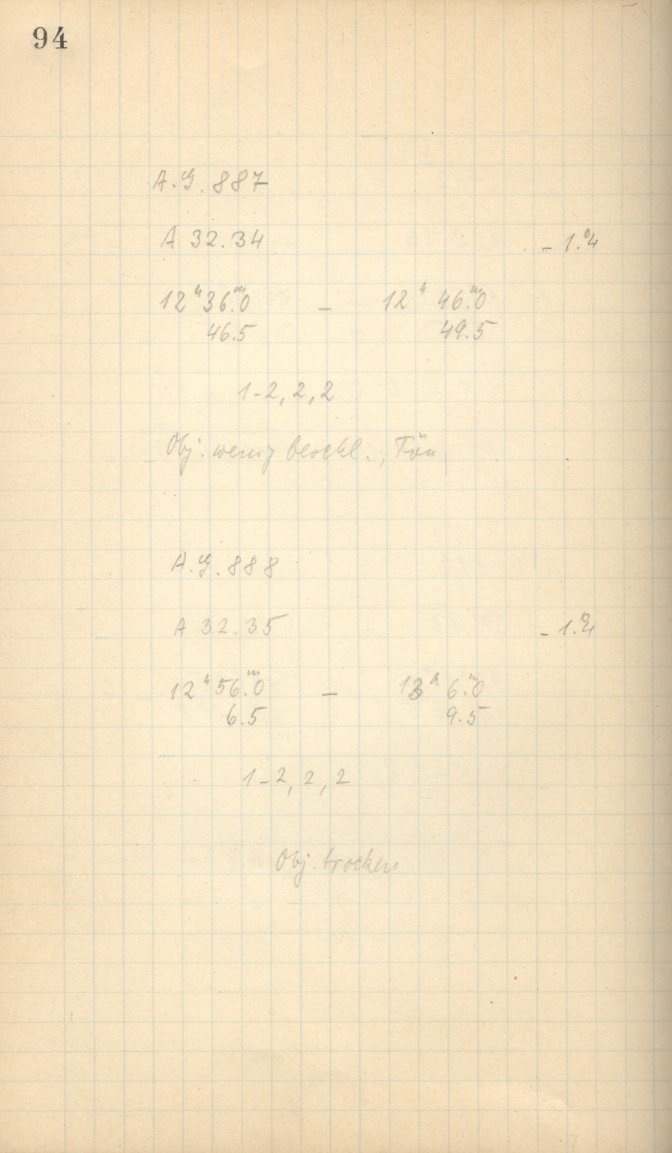 94
A.G. 887
A 32.34 - 1.°4
12ʰ36.ᵐ0 - 12ʰ 46.ᵐ0
46.5 49.5
1-2, 2, 2
Obj. wenig beschl., Fön
A.G. 888
A 32.35 - 1.°4
12ʰ56.ᵐ0 - 13ʰ 6.ᵐ0
6.5 9.5
1-2, 2, 2
Obj. trocken